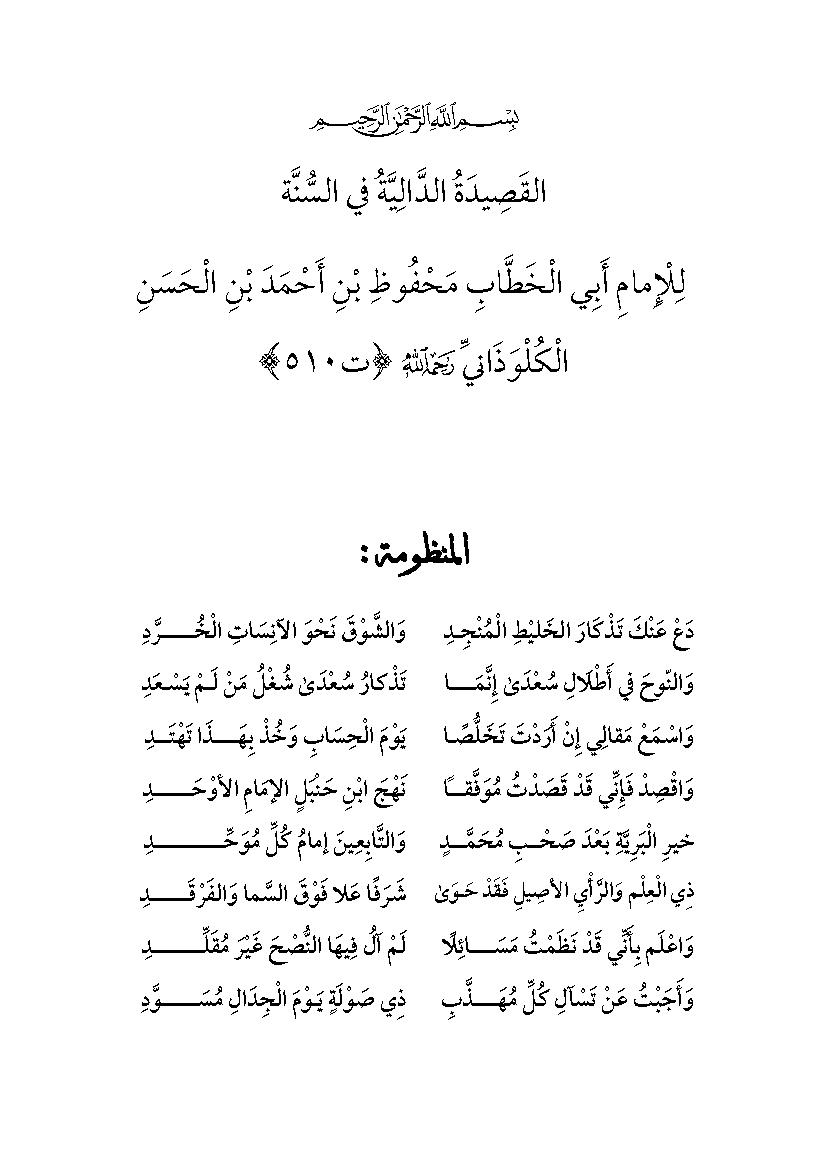 بِسْمِ اللَّهِ الرَّحْمَٰنِ الرَّحِيمِ
القَصِيدَةُ الدَّالِيَّةُ في السُّنَّة
لِلْإِمامِ أَبِي الْخَطَّابِ مَحْفُوظِ بْنِ أَحْمَدَ بْنِ الْحَسَنِ
الْكُلْوَذَانيِّ رَحِمَهُ اللَّهُ ﴿ت٥١٠﴾
المنظومة :
دَعْ عَنْكَ تَذْكَارَ الخَليْطِ الْمُنْجِدِ وَالشَّوْقَ نَحْوَ الآنِسَاتِ الْخُرَّدِ
وَالنّوحَ في أَطْلَالِ سُعْدَىٰ إِنَّمَا تَذْكارُ سُعْدَىٰ شُغْلُ مَنْ لَمْ يَسْعَدِ
وَاسْمَعْ مَقالِي إِنْ أَرَدْتَ تَخَلُّصًا يَوْمَ الْحِسَابِ وَخُذْ بِهَذَا تَهْتَدِ
وَاقْصِدْ فَإِنِّي قَدْ قَصَدْتُ مُوَفَّقًا نَهْجَ ابْنِ حَنْبَلٍ الإمَامِ الأوْحَدِ
خيرِ الْبَرِيَّةِ بَعْدَ صَحْبِ مُحَمَّدٍ وَالتَّابِعِينَ إمامُ كُلِّ مُوَحِّدِ
ذِي الْعِلْمِ وَالرَّأْيِ الأصِيلِ فَقَدْ حَوَىٰ شَرَفًا عَلا فَوْقَ السَّما وَالفَرْقَدِ
وَاعْلَم بِأَنِّي قَدْ نَظَمْتُ مَسَائِلًا لَمْ آلُ فِيهَا النُّصْحَ غَيْرَ مُقَلِّدِ
وَأَجَبْتُ عَنْ تَسْآلِ كُلِّ مُهَذَّبِ ذِي صَوْلَةٍ يَوْمَ الْجِدَالِ مُسَوَّدِ